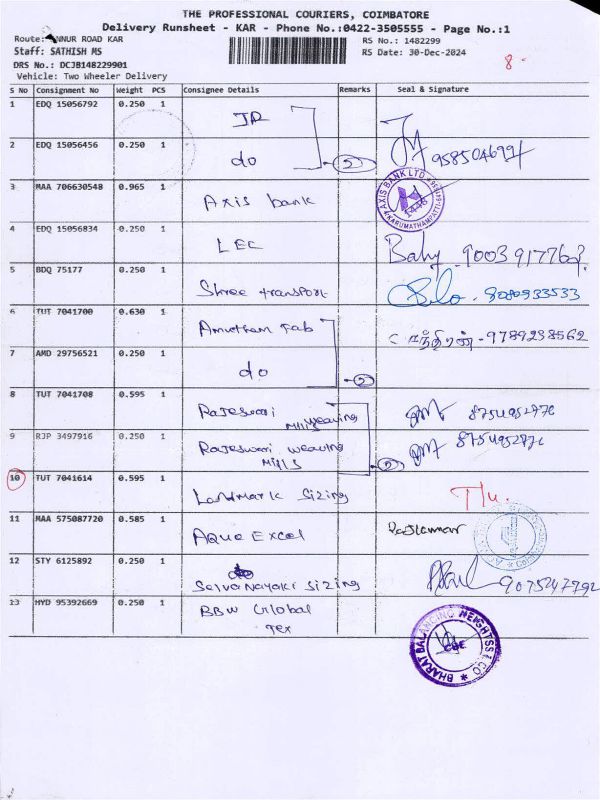 THE PROFESSIONAL COURIERS, COIMBATORE
Delivery Runsheet - KAR - Phone No.:0422-3505555 - Page No.:1
Route: ANNUR ROAD KAR RS No.: 1482299
Staff: SATHISH MS RS Date: 30-Dec-2024
DRS No.: DCJB148229901 8-
Vehicle: Two Wheeler Delivery
S No Consignment No Weight PCS Consignee Details Remarks Seal & Signature
1 EDQ 15056792 0.250 1 JP
2 EDQ 15056456 0.250 1 do
3 MAA 706630548 0.965 1 Axis bank AXIS BANK LTD.
4 EDQ 15056834 0.250 1 LEC
5 BDQ 75177 0.250 1 Shree transport 8080933533
6 TUT 7041700 0.630 1 Amutham Fab - 9789238562
7 AMD 29756521 0.250 1 do 2
8 TUT 7041708 0.595 1 Rajeswari weaving Mills
9 RJP 3497916 0.250 1 Rajeswari weaving Mills 2
10 TUT 7041614 0.595 1 Landmark sizing
11 MAA 575087720 0.585 1 Aqua Excel
12 STY 6125892 0.250 1 Selvanayaki sizing
13 HYD 95392669 0.250 1 BBW Global Tex BHARAT BALANCING WEIGHTSS & CO CBE